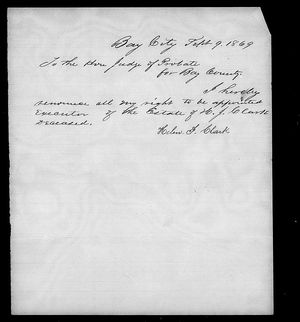 Bay City Sept 9. 1869
To the Hon Judge of Probate
for Bay County
I hereby
renounce all my right to be appointed
Executor of the Estate of H. J. Clark
Deceased.
Helen F. Clark